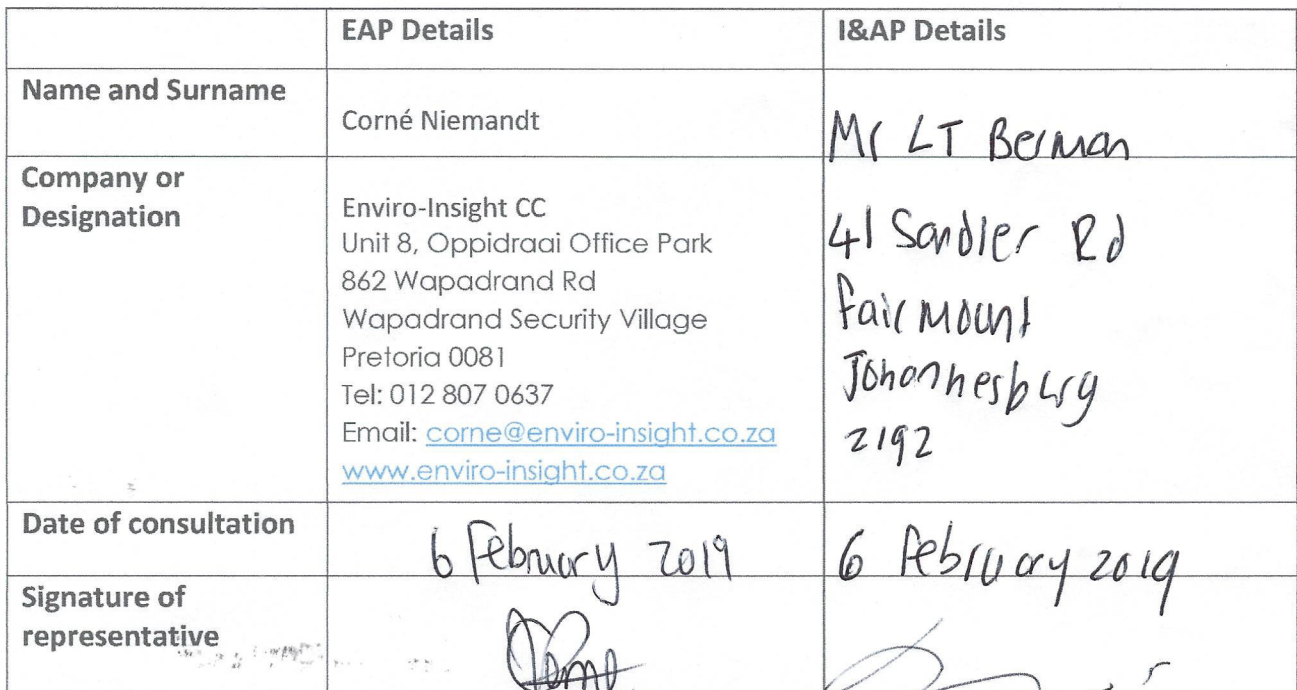 EAP Details
I&AP Details
Name and Surname
Corné Niemandt
Mr LT Berman
Company or
Designation
Enviro-Insight CC
Unit 8, Oppidraai Office Park
862 Wapadrand Rd
Wapadrand Security Village
Pretoria 0081
Tel: 012 807 0637
Email: corne@enviro-insight.co.za
www.enviro-insight.co.za
41 Sandler Rd
Fairmount
Johannesburg
2192
Date of consultation
6 February 2019
6 February 2019
Signature of
representative